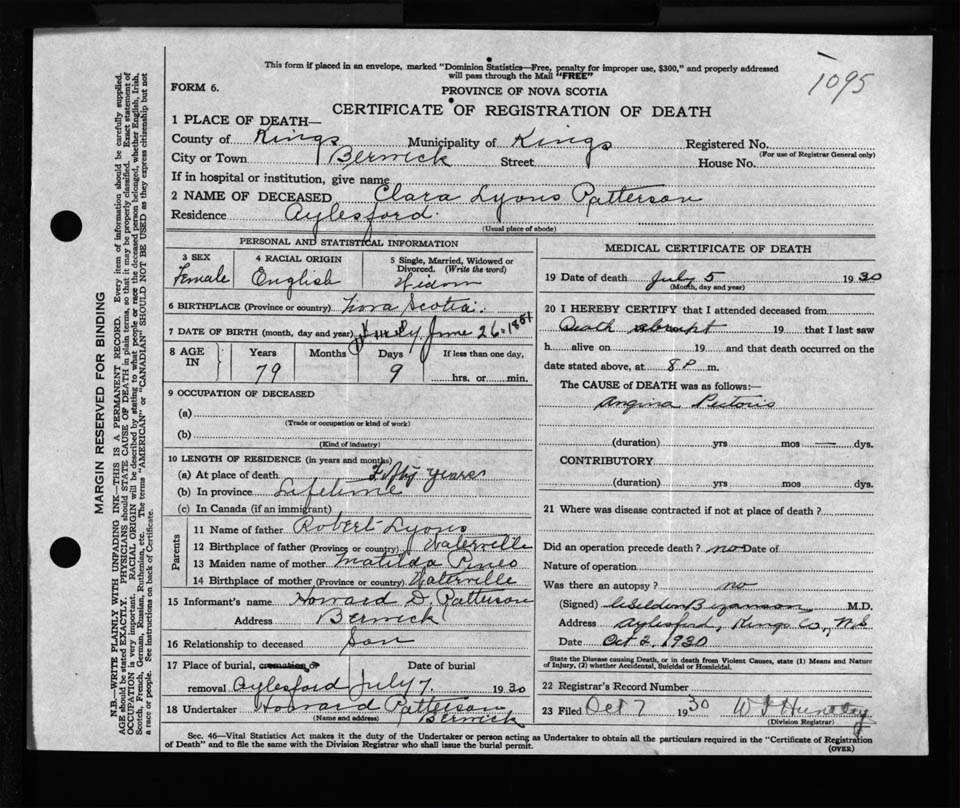 This form if placed in an envelope, marked "Dominion Statistics—Free, penalty for improper use, $300," and properly addressed
will pass through the Mail "FREE"
1095
FORM 6.
PROVINCE OF NOVA SCOTIA
CERTIFICATE OF REGISTRATION OF DEATH
1 PLACE OF DEATH—
County of Kings Municipality of Kings Registered No.
(For use of Registrar General only)
City or Town Berwick Street House No.
If in hospital or institution, give name
2 NAME OF DECEASED Clara Lyons Patterson
Residence Aylesford.
(Usual place of abode)
PERSONAL AND STATISTICAL INFORMATION
3 SEX Female
4 RACIAL ORIGIN English
5 Single, Married, Widowed or Divorced. (Write the word) Widow
6 BIRTHPLACE (Province or country) Nova Scotia.
7 DATE OF BIRTH (month, day and year) June 26. 1851
8 AGE IN Years Months Days If less than one day,
79 9 hrs. or min.
9 OCCUPATION OF DECEASED
(a)
(Trade or occupation or kind of work)
(b)
(Kind of industry)
10 LENGTH OF RESIDENCE (in years and months)
(a) At place of death Fifty years
(b) In province Lifetime
(c) In Canada (if an immigrant)
Parents
11 Name of father Robert Lyons
12 Birthplace of father (Province or country) Waterville
13 Maiden name of mother Matilda Pineo
14 Birthplace of mother (Province or country) Waterville
15 Informant's name Howard D. Patterson
Address Berwick
16 Relationship to deceased Son
17 Place of burial, cremation or Date of burial
removal Aylesford July 7. 1930
18 Undertaker Howard Patterson
(Name and address) Berwick
MEDICAL CERTIFICATE OF DEATH
19 Date of death July 5 1930
(Month, day and year)
20 I HEREBY CERTIFY that I attended deceased from
Death abrupt 19 that I last saw
h alive on 19 and that death occurred on the
date stated above, at 8 P. m.
The CAUSE of DEATH was as follows:—
Angina Pectoris
(duration) yrs mos — dys.
CONTRIBUTORY
(duration) yrs mos dys.
21 Where was disease contracted if not at place of death?
Did an operation precede death? no Date of
Nature of operation
Was there an autopsy? no
(Signed) M.D.
Address Aylesford, Kings Co., N.S.
Date Oct 2, 1930
State the Disease causing Death, or in death from Violent Causes, state (1) Means and Nature
of Injury, (2) whether Accidental, Suicidal or Homicidal.
22 Registrar's Record Number
23 Filed Oct 7 1930
(Division Registrar)
Sec. 46—Vital Statistics Act makes it the duty of the Undertaker or person acting as Undertaker to obtain all the particulars required in the "Certificate of Registration
of Death" and to file the same with the Division Registrar who shall issue the burial permit.
(OVER)
MARGIN RESERVED FOR BINDING
N.B.—WRITE PLAINLY WITH UNFADING INK—THIS IS A PERMANENT RECORD. Every item of information should be carefully supplied.
AGE should be stated EXACTLY. PHYSICIANS should STATE CAUSE OF DEATH in plain terms, so that it may be properly classified. Exact statement of
OCCUPATION is very important. RACIAL ORIGIN will be described by stating to what people or race the deceased person belonged, whether English, Irish,
Scotch, French, German, Russian, Ruthenian, etc. The terms "AMERICAN" or "CANADIAN" SHOULD NOT BE USED as they express citizenship but not
a race or people. See instructions on back of Certificate.